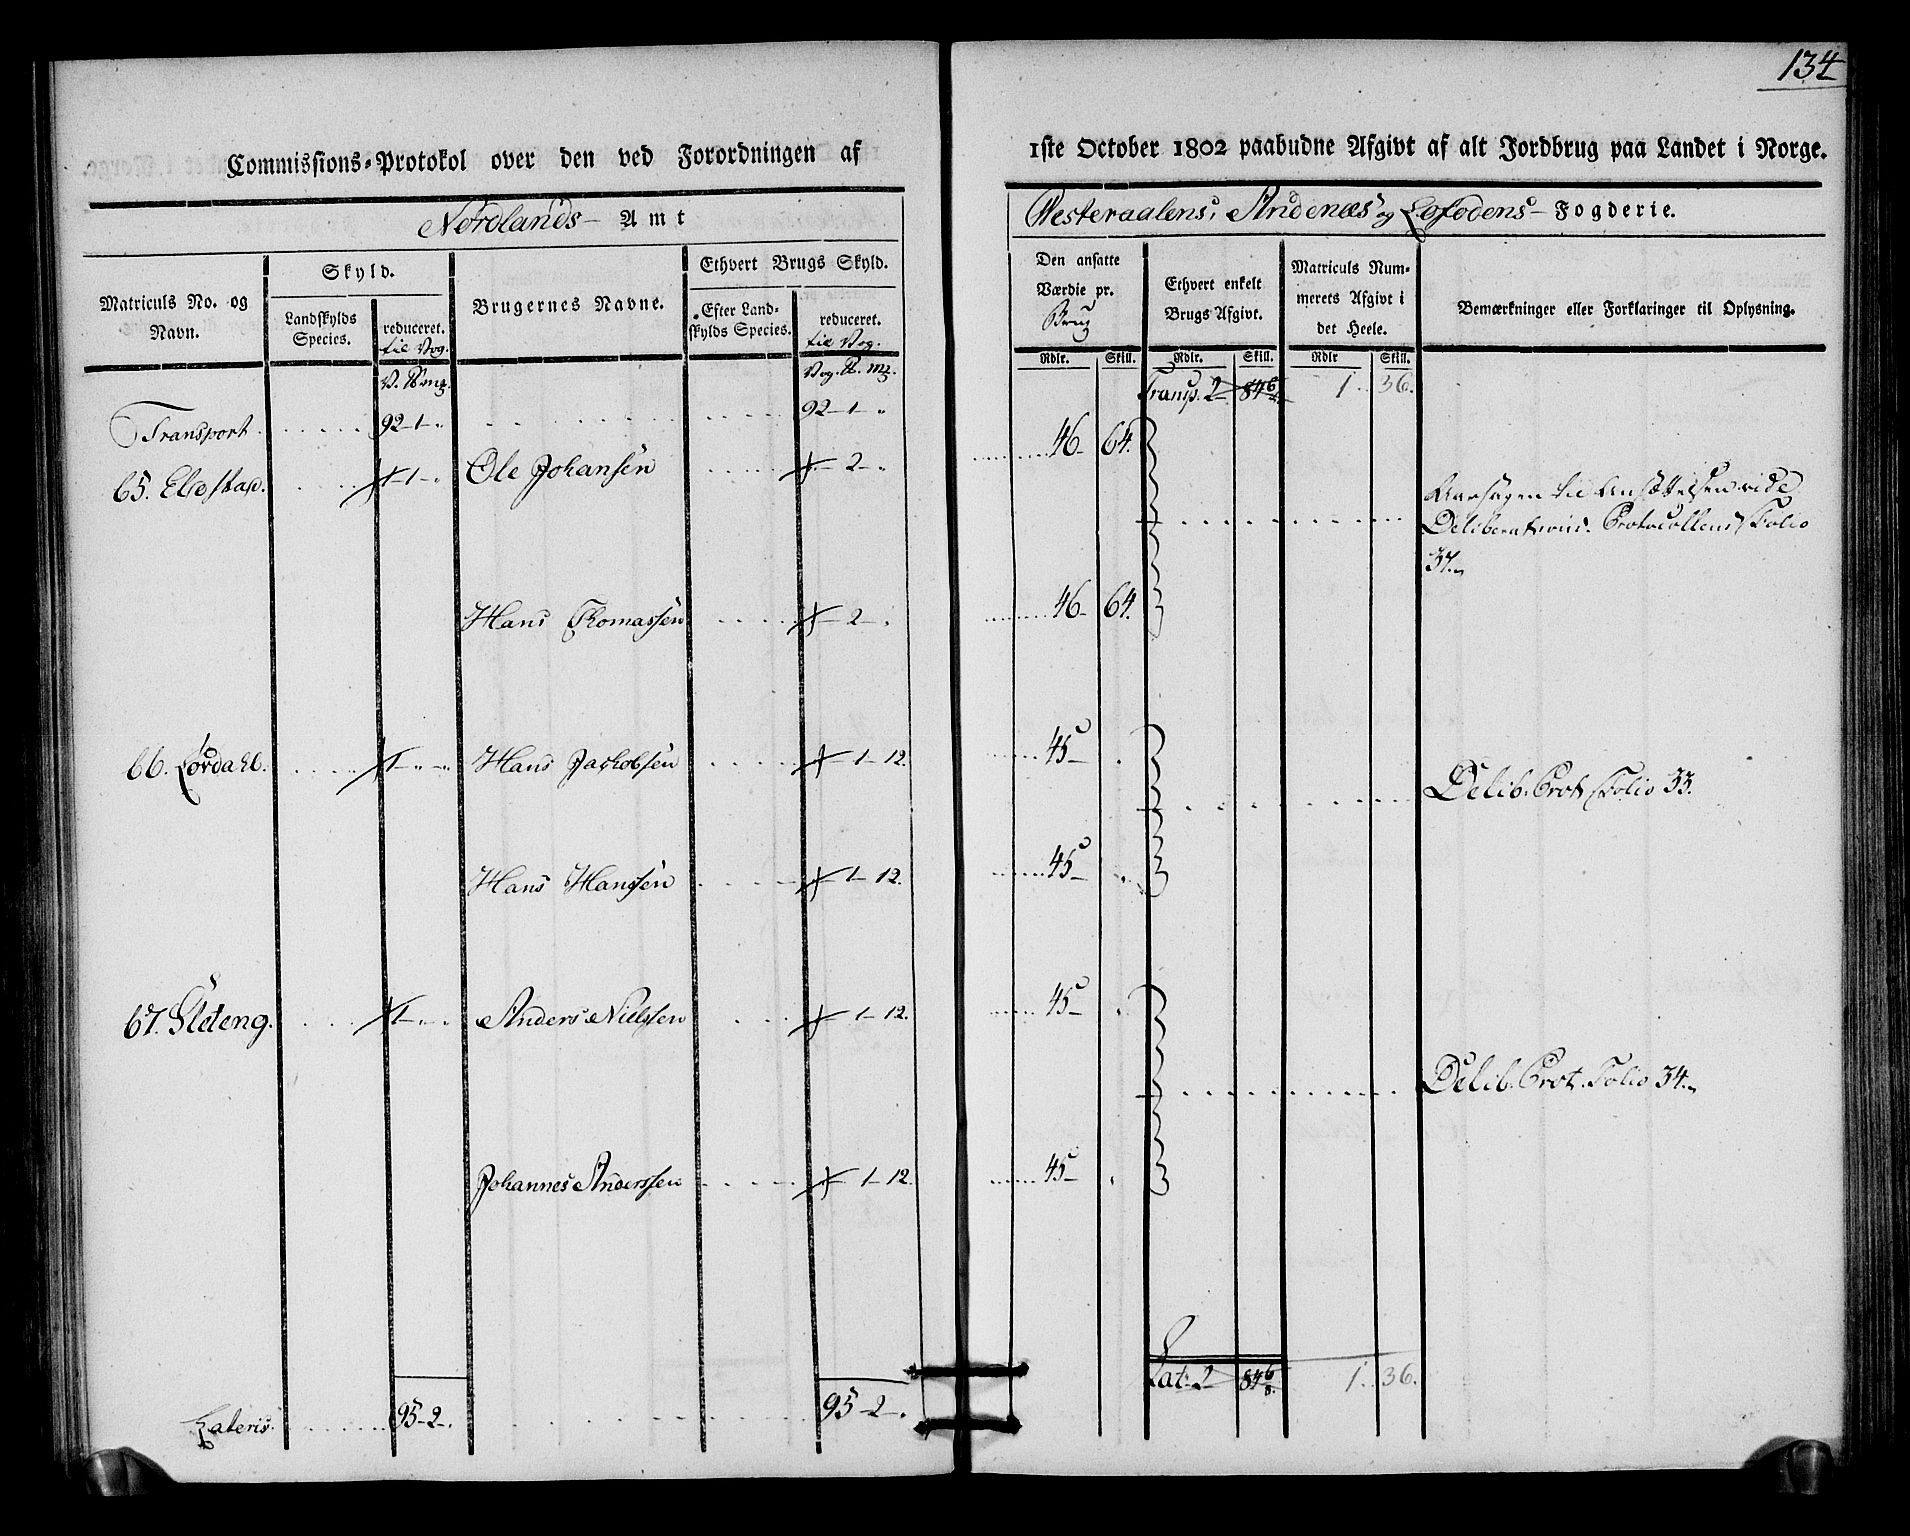 134
Commissions-Protokol over den ved Forordningen af
1ste October 1802 paabudne Afgivt af alt Jordbrug paa Landet i Norge.
Nordlands Amt
Westeraalens, Andenæs og Lofodens Fogderie.
Matriculs No. og Navn.
Skyld.
Landskylds Species.
reduceret. til Vog.
Brugernes Navne.
Ethvert Brugs Skyld.
Efter Landskylds Species.
reduceret. til Vog.
Den ansatte Værdie pr. Brug
Ethvert enkelt Brugs Afgivt.
Matriculs Nummerets Afgivt i det Heele.
Bemærkninger eller Forklaringer til Oplysning.
Rdlr. Skill. Rdlr. Skill. Rdlr Skill.
Transp. 2 1 .. 36.
Transport 92-1-" 92-1-"
1-" Ole Johansen 2-" 46 64.
Deliberations Protocollens Folio
37.
Hans Thomassen 2-" 46 64.
66. Hans Jachobsen 1-12. 45
Delib. Prot Folio 33.
Hans Hanssen 1-12. 45
67. Anders Nielssen 1-12. 45
Delib. Prot. Folio 34.
Johannes Anderssen 1-12. 45
Lateris 95-2-. 95-2-.
Lat: 2 1 .. 36.